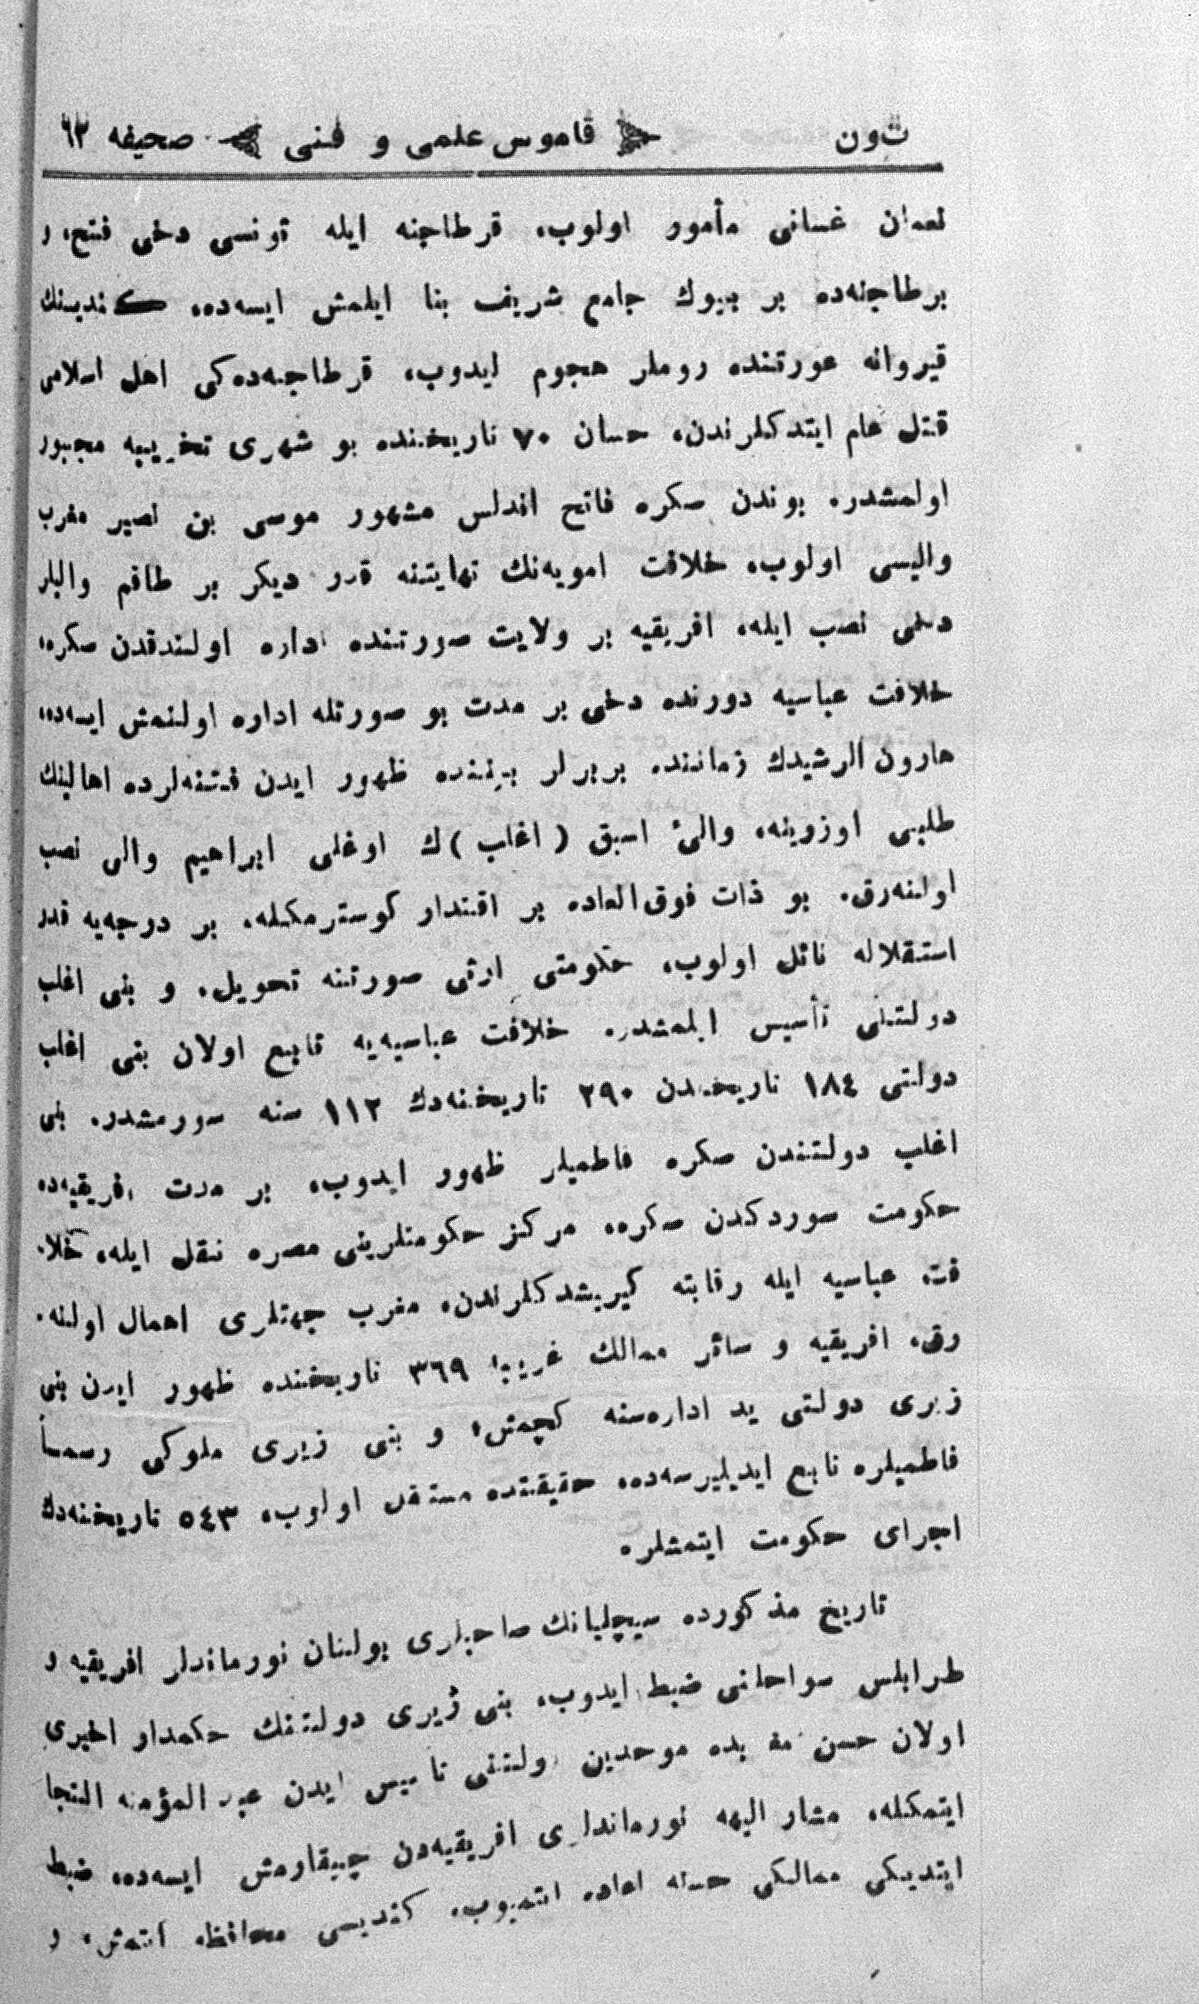 تون قاموس علمی و فنی صحیفه ٦٢
نعمان غسانی مأمور اولوب، قرطاجنه ایله تونسی دخی فتح، و
برطاجنه‌ده بر بیوك جامع شریف بنا ایلمش ایسه‌ده، كندیسنك
قیروانه عورتنده روملر هجوم ایدوب، قرطاجنه‌ده‌كی اهل اسلامی
قتل عام ایتدكلرندن، حسان ٧٠ تاریخنده بو شهری تخریبه مجبور
اولمشدر. بوندن صكره فاتح اندلس مشهور موسی بن نصیر مغرب
والیسی اولوب، خلافت امویه‌نك نهایتنه قدر دیكر بر طاقم والیلر
دخی نصب ایله، افریقیه بر ولایت صورتنده اداره اولندقدن صكره،
خلافت عباسیه دورنده دخی بر مدت بو صورتله اداره اولنمش ایسه‌ده،
هارون الرشیدك زماننده بربرلر بیننده ظهور ایدن فتنه‌لرده اهالینك
طلبی اوزرینه، والئ اسبق (اغلب)ك اوغلی ابراهیم والی نصب
اولنه‌رق. بو ذات فوق‌العاده بر اقتدار كوسترمكله، بر درجه‌یه قدر
استقلاله نائل اولوب، حكومتی ارثی صورتنه تحویل، و بنی اغلب
دولتنی تأسیس ایلمشدر. خلافت عباسیه‌یه تابع اولان بنی اغلب
دولتی ١٨٤ تاریخندن ٢٩٠ تاریخنه‌دك ١١٢ سنه سورمشدر. بنی
اغلب دولتندن صكره فاطمیلر ظهور ایدوب، بر مدت افریقیه‌ده
حكومت سوردكدن صكره، مركز حكومتلرینی مصره نقل ایله، خلا-
فت عباسیه ایله رقابته كیریشدكلرندن، مغرب جهتلری اهمال اولنه-
رق، افریقیه و سائر ممالك غربیه ٣٦٩ تاریخنده ظهور ایدن بنی
زیری دولتی ید اداره‌سنه كچمش، و بنی زیری ملوكی رسماً
فاطمیلره تابع ایدیلیرسه‌ده، حقیقتده مستقل اولوب، ٥٤٣ تاریخنه‌دك
اجرای حكومت ایتمشلر.
تاریخ مذكورده سیچلیانك صاحبلری بولنان نورماندلر افریقیه و
طرابلس سواحلنی ضبط ایدوب، بنی زیری دولتنك حكمدار اخیری
اولان حسن موحدین دولتنی تأسیس ایدن عبد المؤمنه التجا
ایتمكله، مشار الیهه نورماندلری افریقیه‌دن چیقارمش ایسه‌ده، ضبط
ایتدیكی ممالكی حسنه اعاده ایتمیوب، كندیسی محافظه ایتمش، و